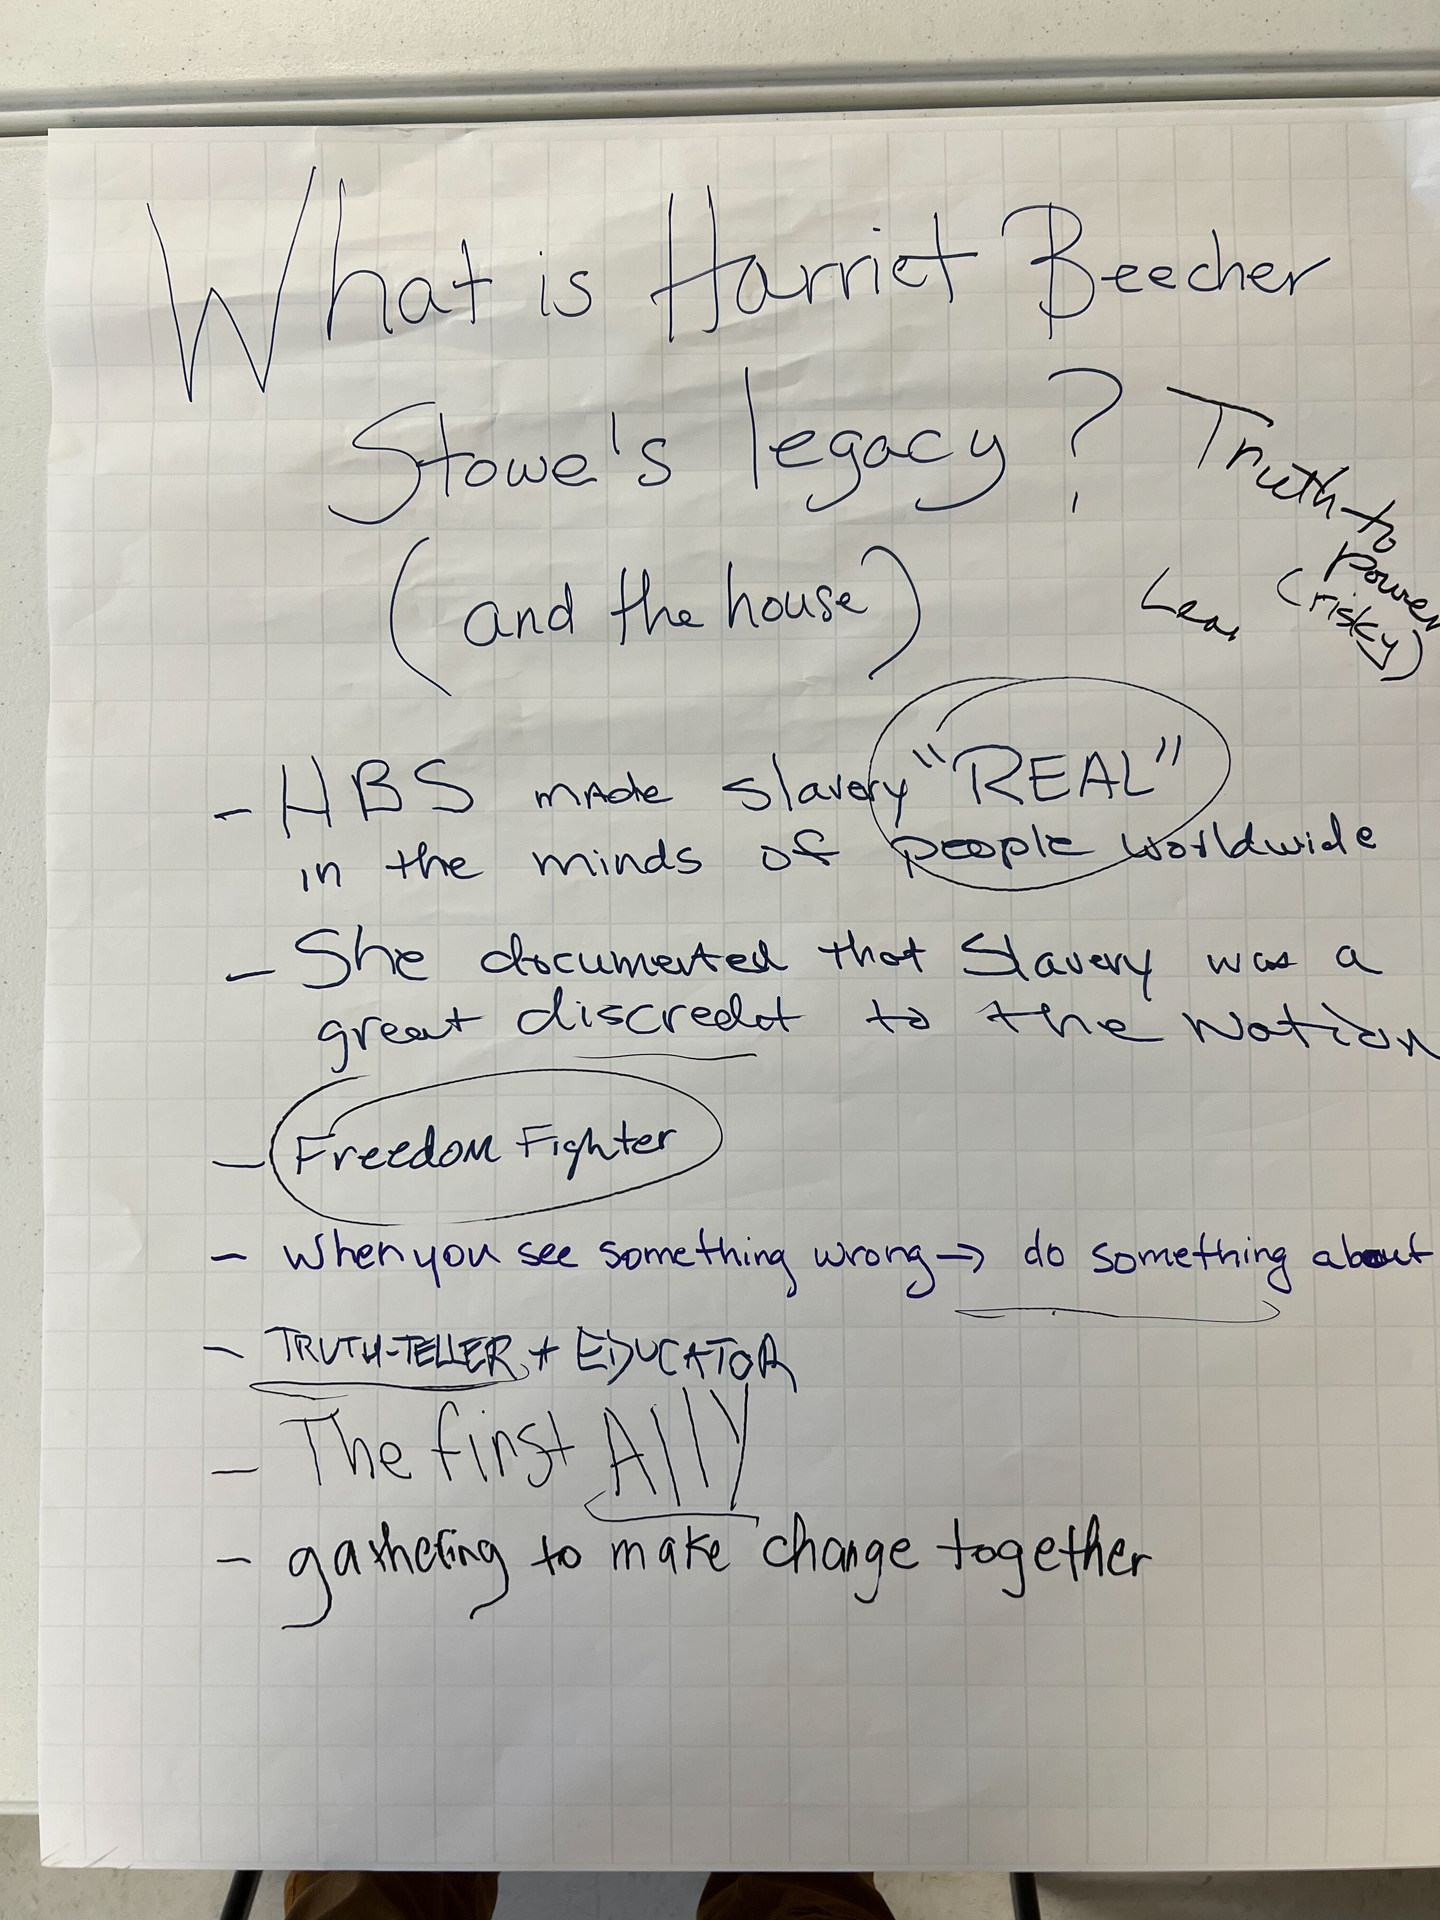 What is Harriet Beecher
Stowe's legacy?
(and the house)
Truth to
power
(risky)
- HBS made slavery "REAL"
in the minds of people worldwide
- She documented that Slavery was a
great discredit to the Nation
- Freedom Fighter
- When you see something wrong → do something about
- TRUTH-TELLER + EDUCATOR
- The first Ally
- gathering to make change together